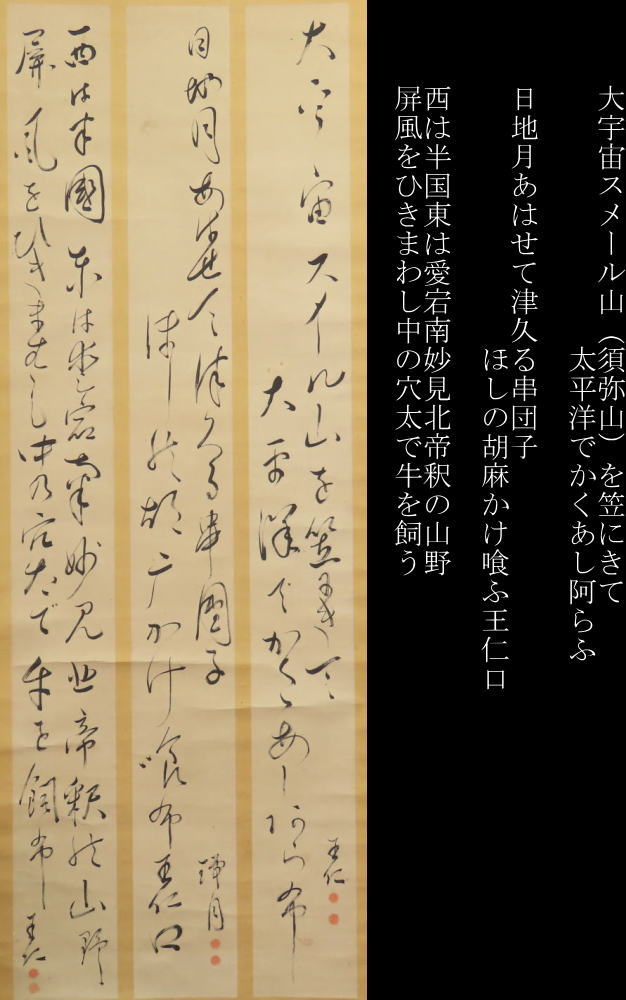 大宇宙スメール山（須弥山）を笠にきて
太平洋でかくあし阿らふ
日地月あはせて津久る串団子
ほしの胡麻かけ喰ふ王仁口
西は半国東は愛宕南妙見北帝釈の山野
屏風をひきまわし中の穴太で牛を飼う
大宇宙スメール山を笠にきて
大平洋でかくあしあらふ
王仁
日地月あはせて津久る串團子
ほしの胡麻かけ喰ふ王仁口
瑞月
西は半國東は愛宕南妙見北帝釈の山野
屏風をひきまわし中の穴太で牛を飼ふ
王仁